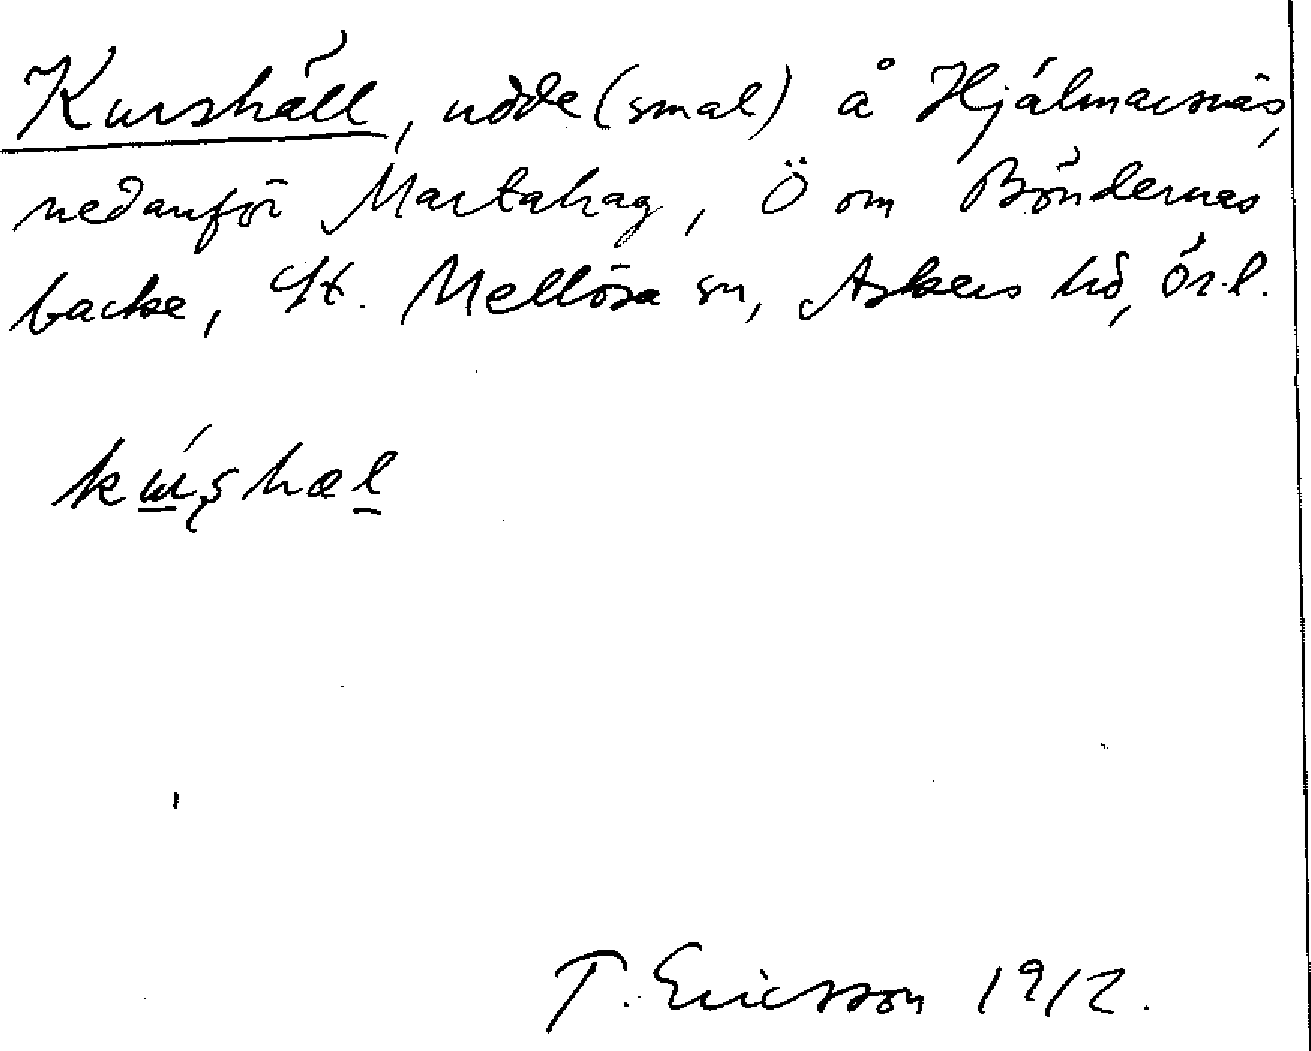 Kurshäll, udde (smal) å Hjälmarsnäs,
nedanför Martahag, Ö om Böndernas
backe, St. Mellösa sn, Askers hd, Ör.l.
T. Ericsson 1912.